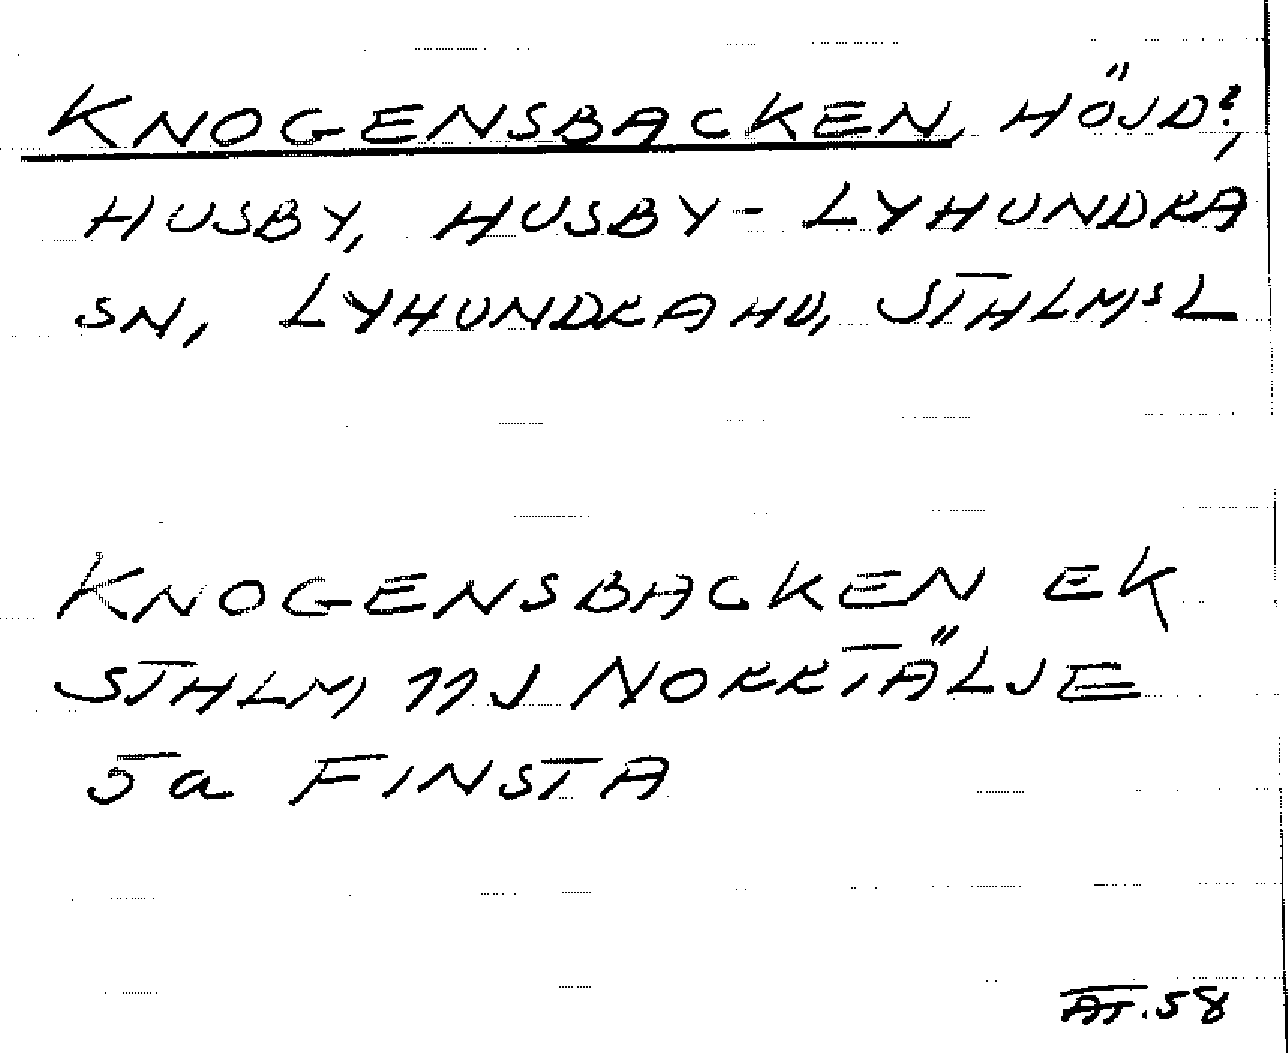 KNOGENSBACKEN, HÖJD?,
HUSBY, HUSBY-LYHUNDRA
SN, LYHUNDRA HD, STHLMS L
KNOGENSBACKEN EK
STHLM, 11J NORRTÄLJE
5a FINSTA
AT.58